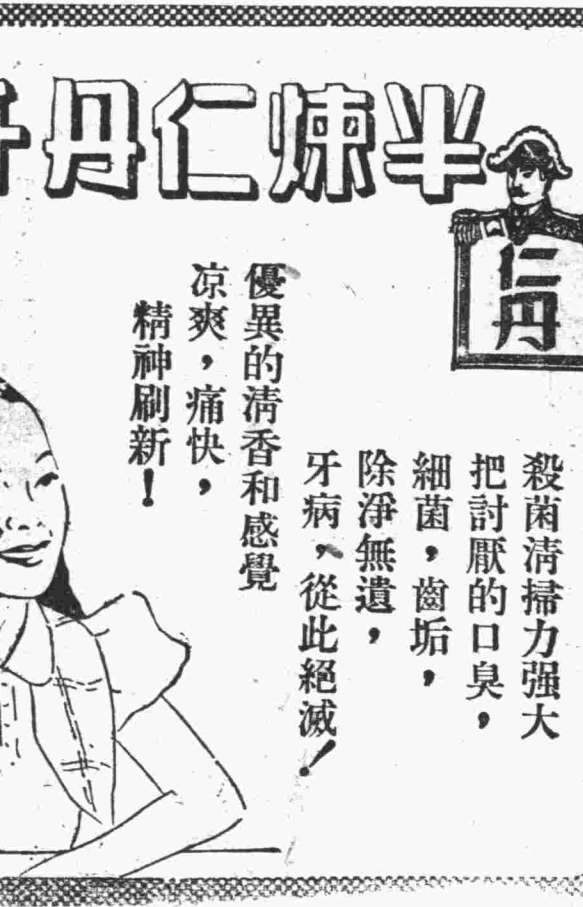 半煉仁丹牙
仁丹
殺菌淸掃力强大
把討厭的口臭，
細菌，齒垢，
除淨無遺，
牙病，從此絕滅！
優異的淸香和感覺
凉爽，痛快，
精神刷新！